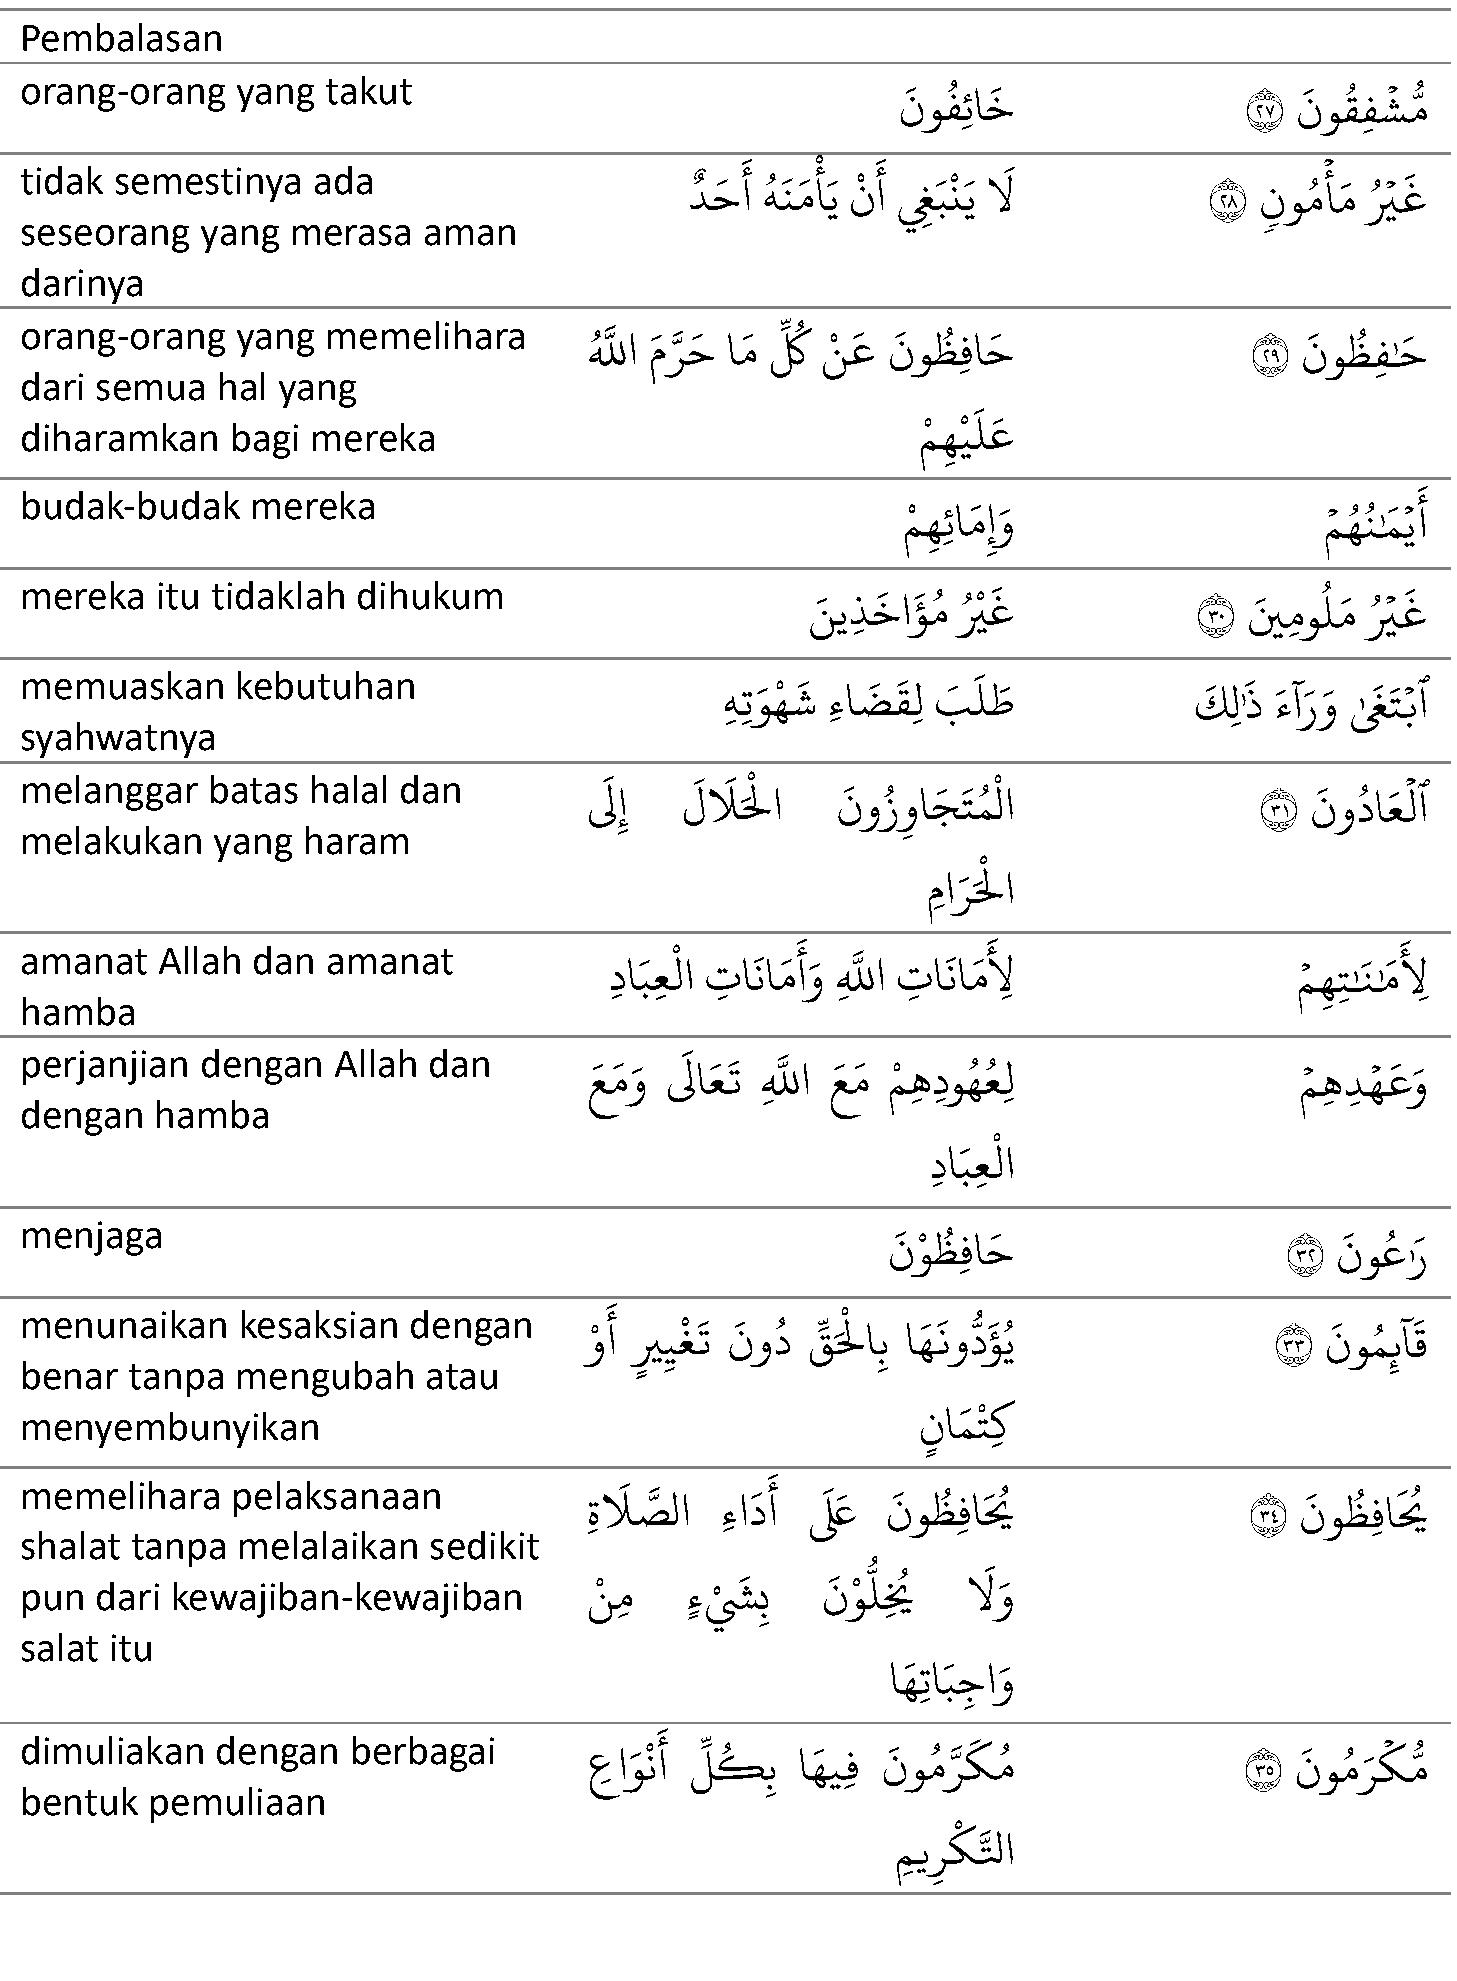 Pembalasan
orang-orang yang takut
خَائِفُونَ
مُّشۡفِقُونَ ٢٧
tidak semestinya ada
seseorang yang merasa aman
darinya
لَا يَنْبَغِي أَنْ يَأْمَنَهُ أَحَدٌ
غَيۡرُ مَأۡمُونٖ ٢٨
orang-orang yang memelihara
dari semua hal yang
diharamkan bagi mereka
حَافِظُونَ عَنْ كُلِّ مَا حَرَّمَ اللَّهُ
عَلَيْهِمْ
حَٰفِظُونَ ٢٩
budak-budak mereka
وَإِمَائِهِمْ
أَيۡمَٰنُهُمۡ
mereka itu tidaklah dihukum
غَيْرُ مُؤَاخَذِينَ
غَيۡرُ مَلُومِينَ ٣٠
memuaskan kebutuhan
syahwatnya
طَلَبَ لِقَضَاءِ شَهْوَتِهِ
ٱبۡتَغَىٰ وَرَآءَ ذَٰلِكَ
melanggar batas halal dan
melakukan yang haram
الْمُتَجَاوِزُونَ الْحَلَالَ إِلَى
الْحَرَامِ
ٱلۡعَادُونَ ٣١
amanat Allah dan amanat
hamba
لِأَمَانَاتِ اللَّهِ وَأَمَانَاتِ الْعِبَادِ
لِأَمَٰنَٰتِهِمۡ
perjanjian dengan Allah dan
dengan hamba
لِعُهُودِهِمْ مَعَ اللَّهِ تَعَالَى وَمَعَ
الْعِبَادِ
وَعَهۡدِهِمۡ
menjaga
حَافِظُوْنَ
رَٰعُونَ ٣٢
menunaikan kesaksian dengan
benar tanpa mengubah atau
menyembunyikan
يُؤَدُّونَهَا بِالْحَقِّ دُونَ تَغْيِيرٍ أَوْ
كِتْمَانٍ
قَآئِمُونَ ٣٣
memelihara pelaksanaan
shalat tanpa melalaikan sedikit
pun dari kewajiban-kewajiban
salat itu
يُحَافِظُونَ عَلَى أَدَاءِ الصَّلَاةِ
وَلَا يُخِلُّوْنَ بِشَيْءٍ مِنْ
وَاجِبَاتِهَا
يُحَافِظُونَ ٣٤
dimuliakan dengan berbagai
bentuk pemuliaan
مُكَرَّمُونَ فِيهَا بِكُلِّ أَنْوَاعِ
التَّكْرِيمِ
مُّكۡرَمُونَ ٣٥